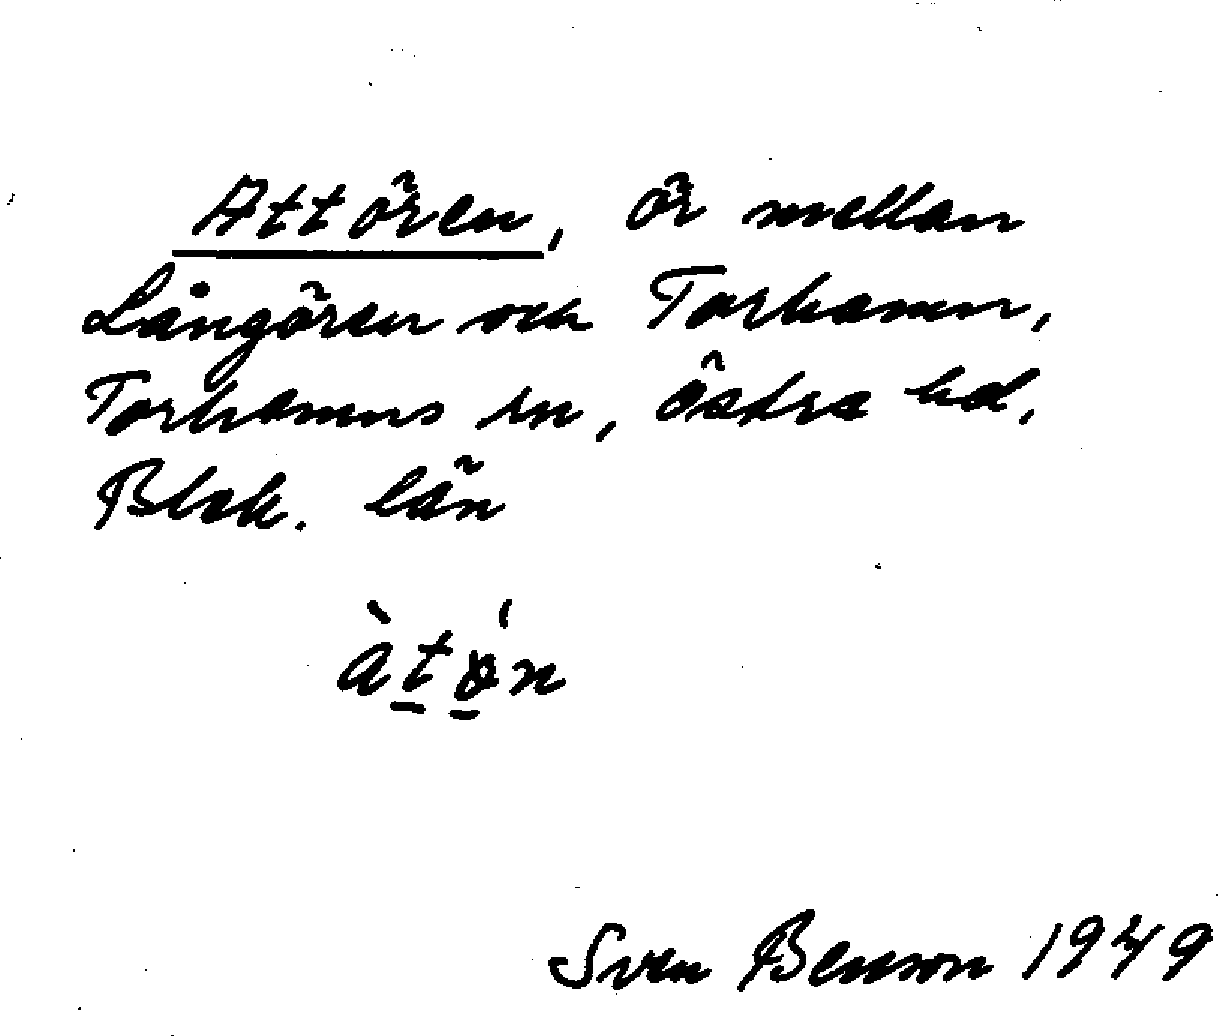 Attören, ör mellan
Långören och Torhamn,
Torhamns sn, Östra hd,
Blek. län
àtǿn
Sven Benson 1949